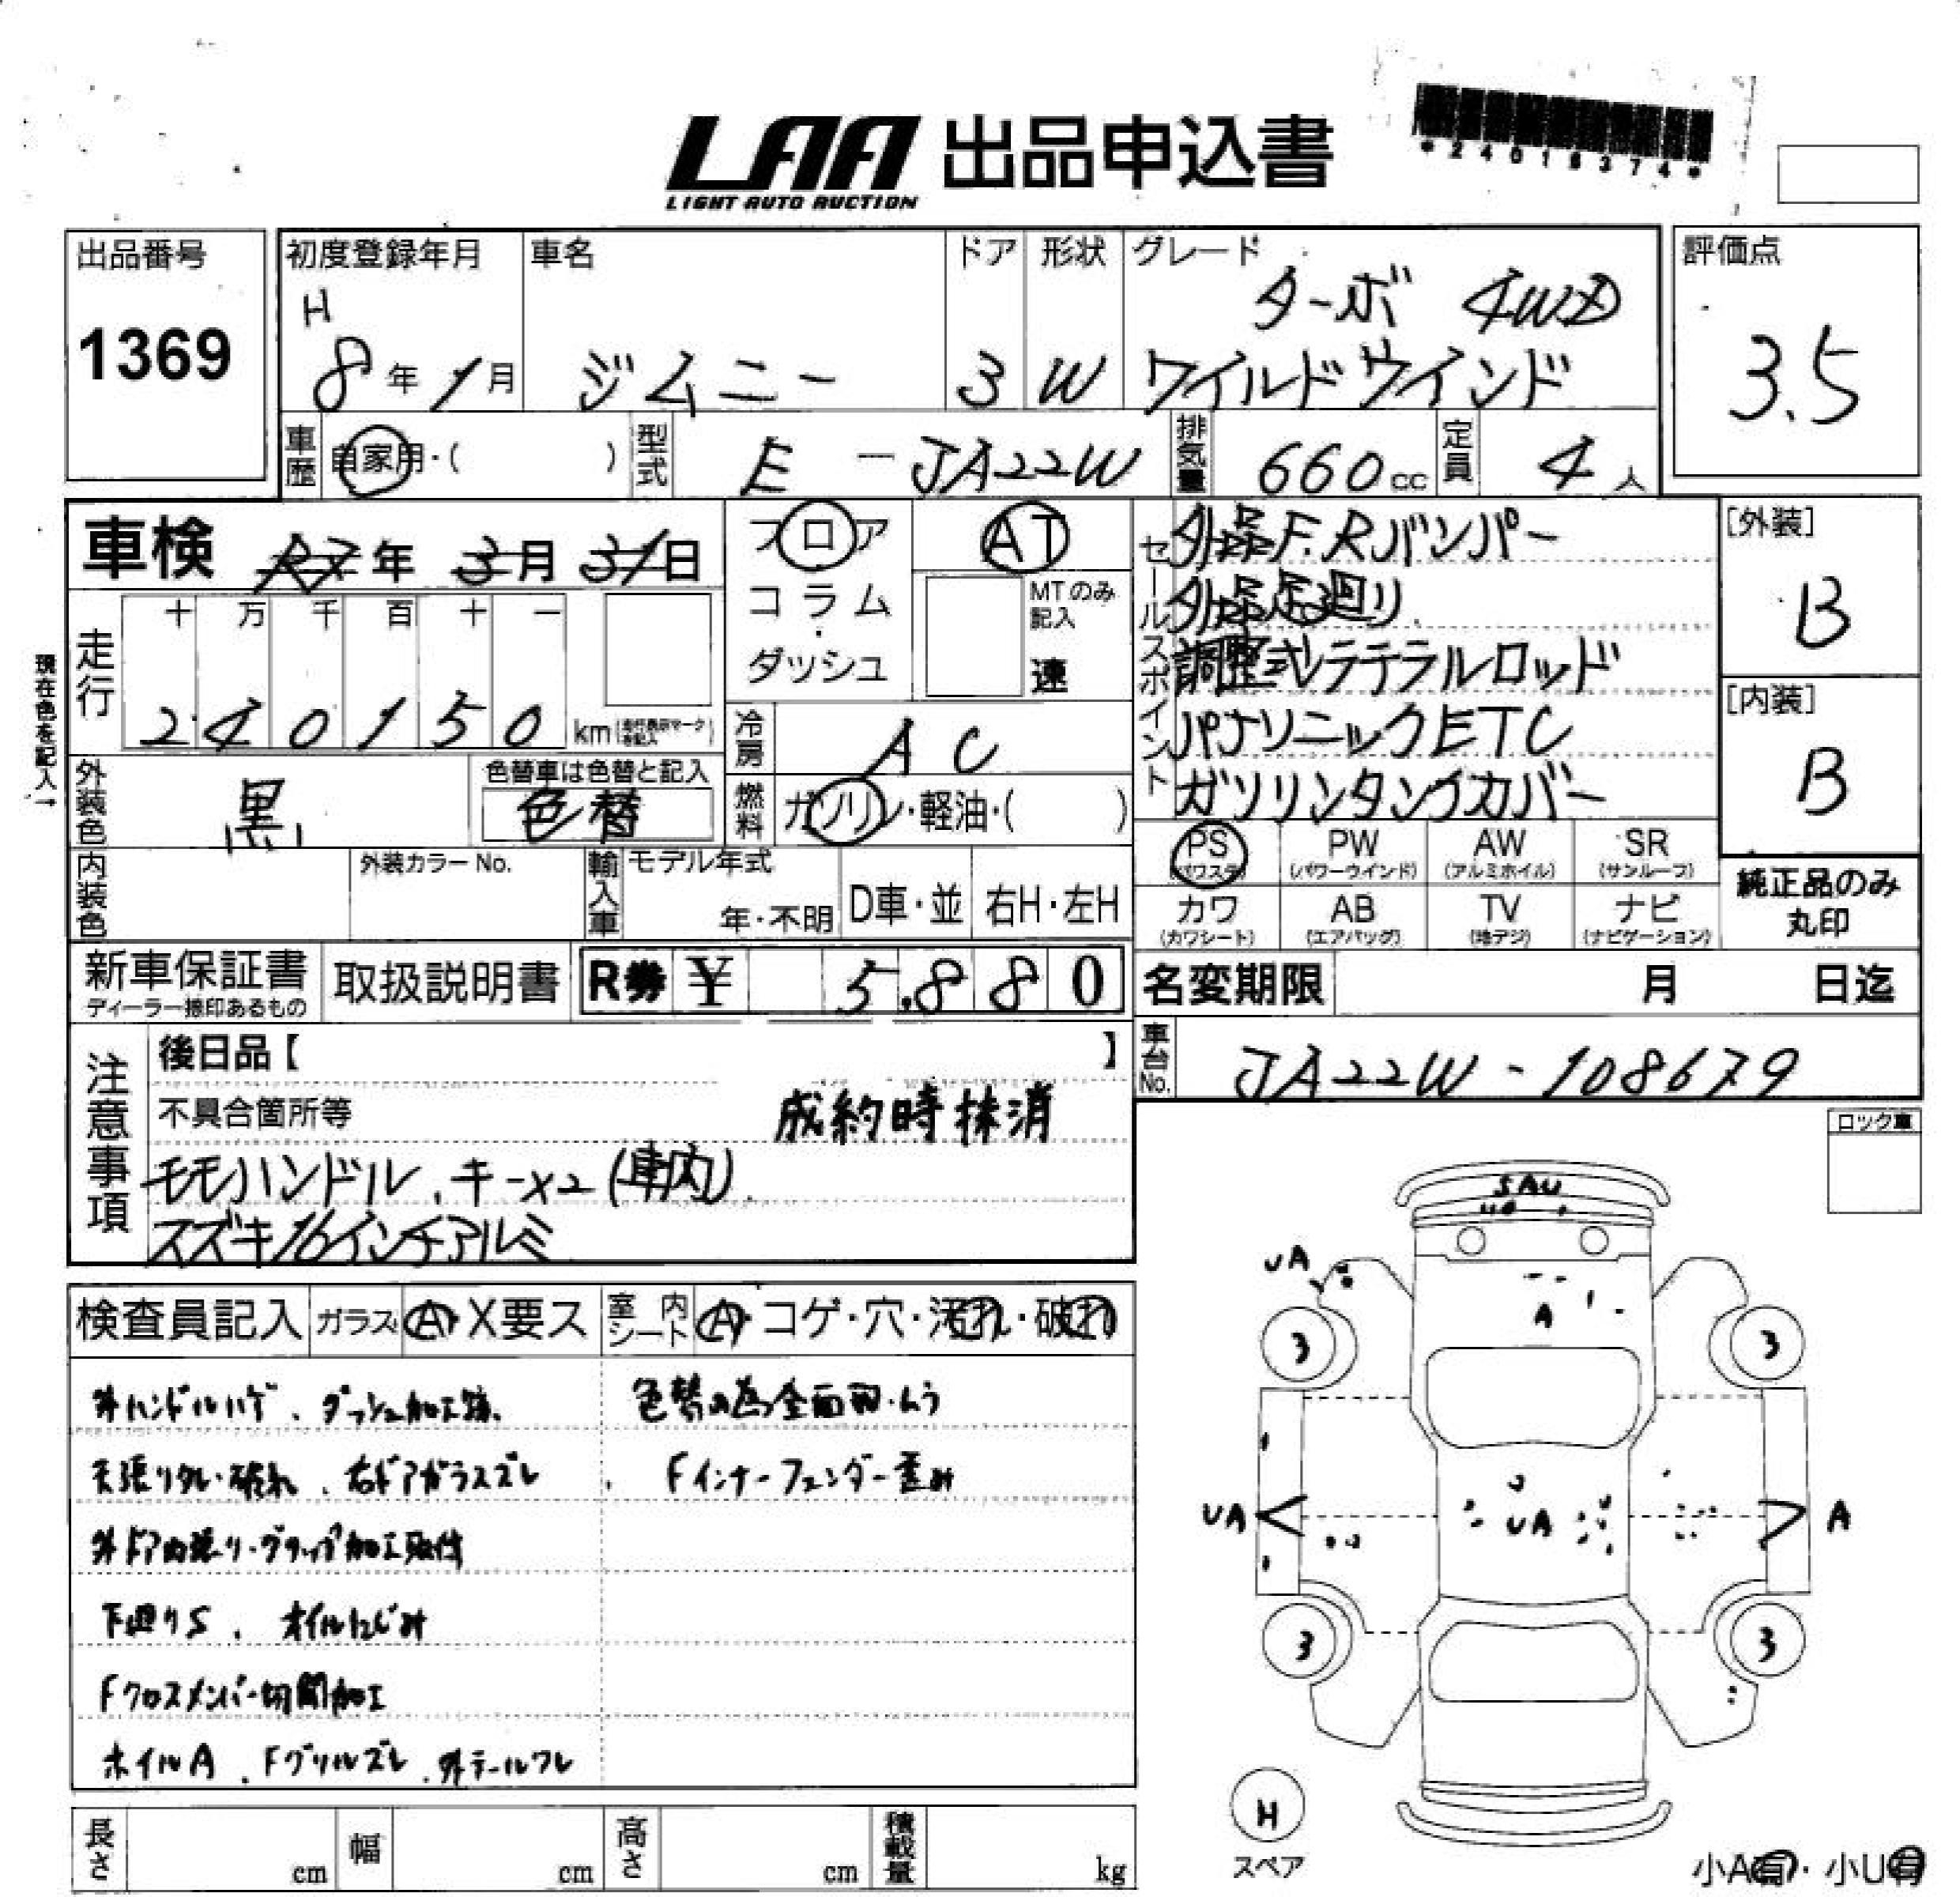 *24016374*
LAA 出品申込書
LIGHT AUTO AUCTION
出品番号
1369
初度登録年月
H
8年1月
車名
ジムニー
ドア
3
形状
W
グレード
ターボ 4WD
ワイルドウインド
評価点
3.5
車歴
自家用・( )
型式
E - JA22W
排気量
660cc
定員
4人
車検 R7年 3月 31日
フロア
コラム
・
ダッシュ
AT
MTのみ
記入
速
セールスポイント
外品F.Rバンパー
外品足廻り
調整式ラテラルロッド
パナソニックETC
ガソリンタンクカバー
[外装]
B
[内装]
B
現在色を記入→
走行
十 万 千 百 十 一
2 4 0 1 5 0 km
冷房
AC
外装色
黒
色替車は色替と記入
色替
燃料
ガソリン・軽油・( )
PS
(パワステ)
PW
(パワーウインド)
AW
(アルミホイル)
SR
(サンルーフ)
カワ
(カワシート)
AB
(エアバッグ)
TV
(地デジ)
ナビ
(ナビゲーション)
純正品のみ
丸印
内装色
外装カラーNo.
輸入車
モデル年式
年・不明
D車・並
右H・左H
新車保証書
ディーラー捺印あるもの
取扱説明書
R券 ¥ 5,880
名変期限 月 日迄
車台No.
JA22W-108679
注意事項
後日品【 】
不具合箇所等
成約時抹消
モモハンドル、キー×2(車内)
スズキ16インチアルミ
ロック車
検査員記入
ガラス
A・X要ス
室内
シート
A・コゲ・穴・汚れ・破れ
外ハンドルハゲ、ダッシュ加工跡、
天張りタレ・破れ、右ドアガラスズレ
外ドア内張り・グリップ加工取付
下廻りS、オイルにじみ
Fクロスメンバー切開加工
ホイルA、Fグリルズレ、外テールワレ
色替の為全面
Fインナーフェンダー歪み
SAU
UA
A
3
3
UA
UA
A
3
3
H
スペア
小A有・小U有
長さ cm
幅 cm
高さ cm
積載量 kg